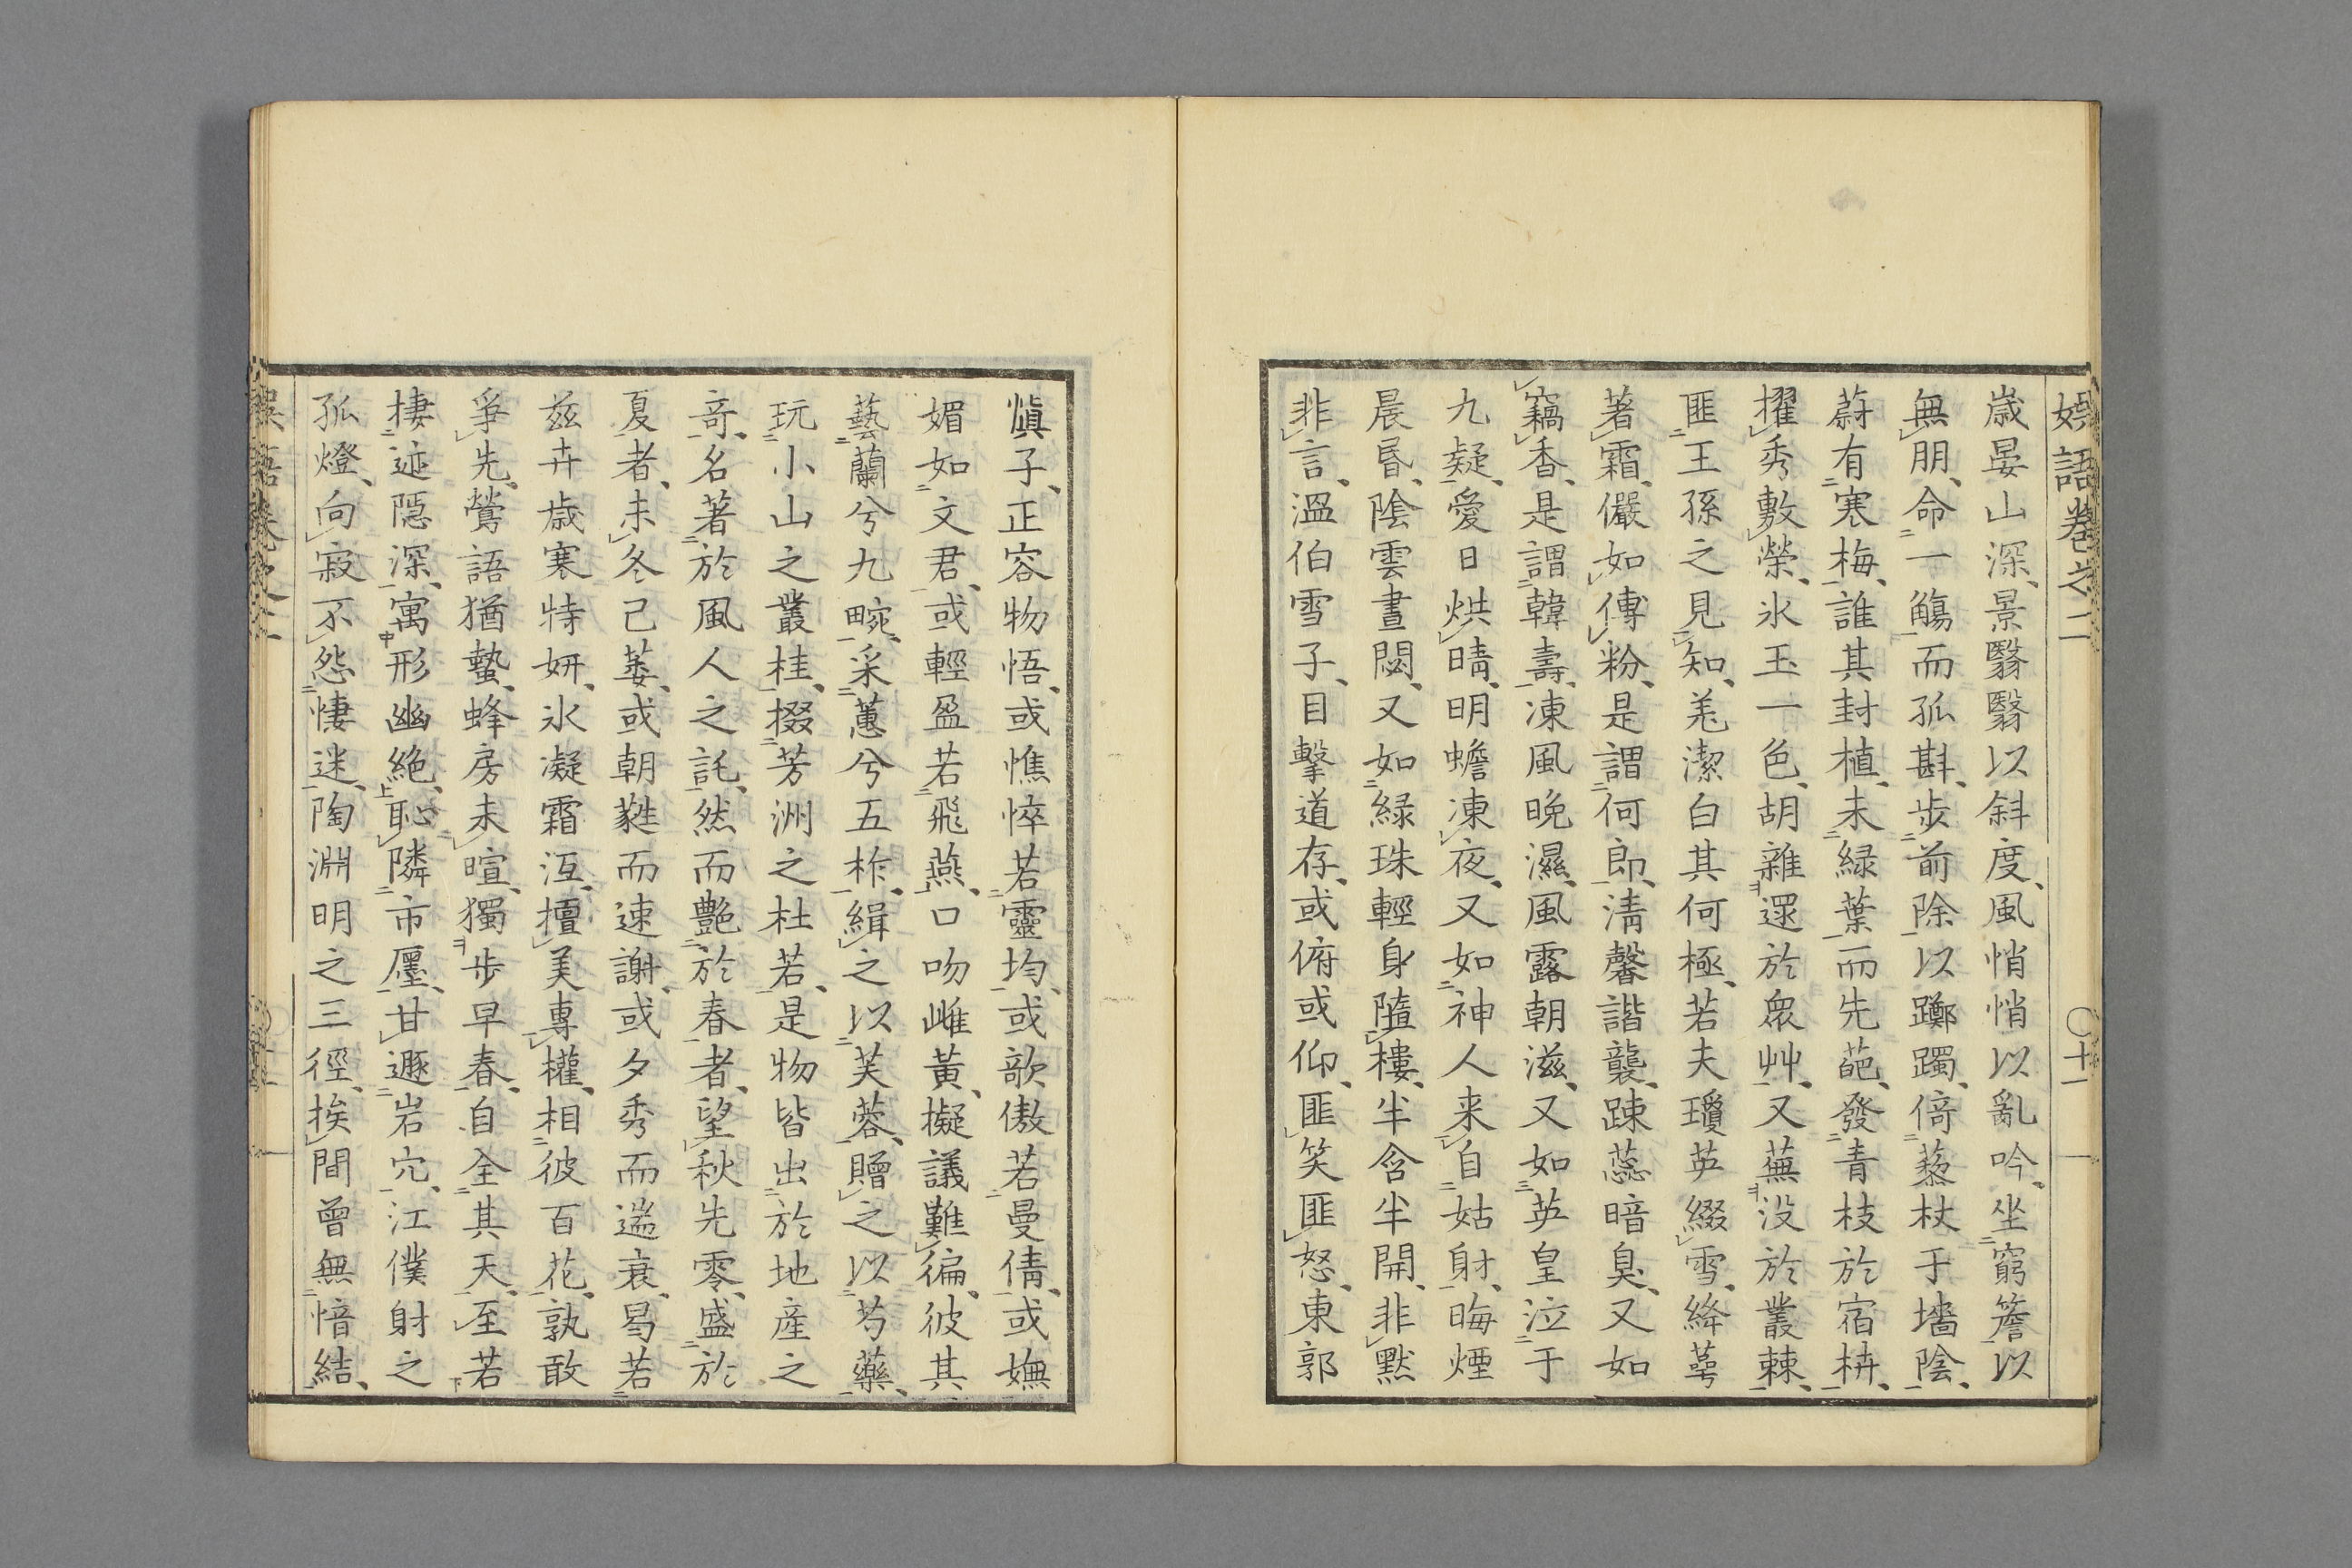 娯語卷之二 〇十一
歳晏山深、景翳翳以斜度、風悄悄以亂吟、坐窮簷以
無朋、命一觴而孤斟、歩前除以躑躅、倚藜杖于墻陰、
蔚有寒梅、誰其封植、未緑葉而先葩、發青枝於宿枿、
擢秀敷榮、氷玉一色、胡雜遝於衆艸、又蕪没於叢棘、
匪王孫之見知、羌潔白其何極、若夫瓊英綴雪、絳萼
著霜、儼如傅粉、是謂何郎、清馨諧襲、踈蕊暗臭、又如
竊香、是謂韓壽、凍風晩濕、風露朝滋、又如英皇泣于
九疑、愛日烘晴、明蟾凍夜、又如神人来自姑射、晦煙
晨昬、陰雲晝閟、又如緑珠輕身墮樓、半含半開、非黙
非言、温伯雪子、目擊道存、或俯或仰、匪笑匪怒、東郭
愼子、正容物悟、或憔悴若靈均、或歌傲若曼倩、或嫵
媚如文君、或輕盈若飛燕、口吻雌黄、擬議難徧、彼其
藝蘭兮九畹、采蕙兮五柞、緝之以芙蓉、贈之以芍藥、
玩小山之叢桂、掇芳洲之杜若、是物皆出於地産之
竒、名著於風人之託、然而艶於春者、望秋先零、盛於
夏者、未冬已萎、或朝蕤而速謝、或夕秀而遄衰、曷若
兹卉歳寒特妍、氷凝霜沍、擅美專權、相彼百花、孰敢
爭先、鶯語猶蟄、蜂房未暄、獨歩早春、自全其天、至若
棲迹隱深、寓形幽絶、恥隣市廛、甘遯岩穴、江僕射之
孤燈、向寂不怨悽迷、陶淵明之三徑、挨間曾無愔結、
娯語卷之二